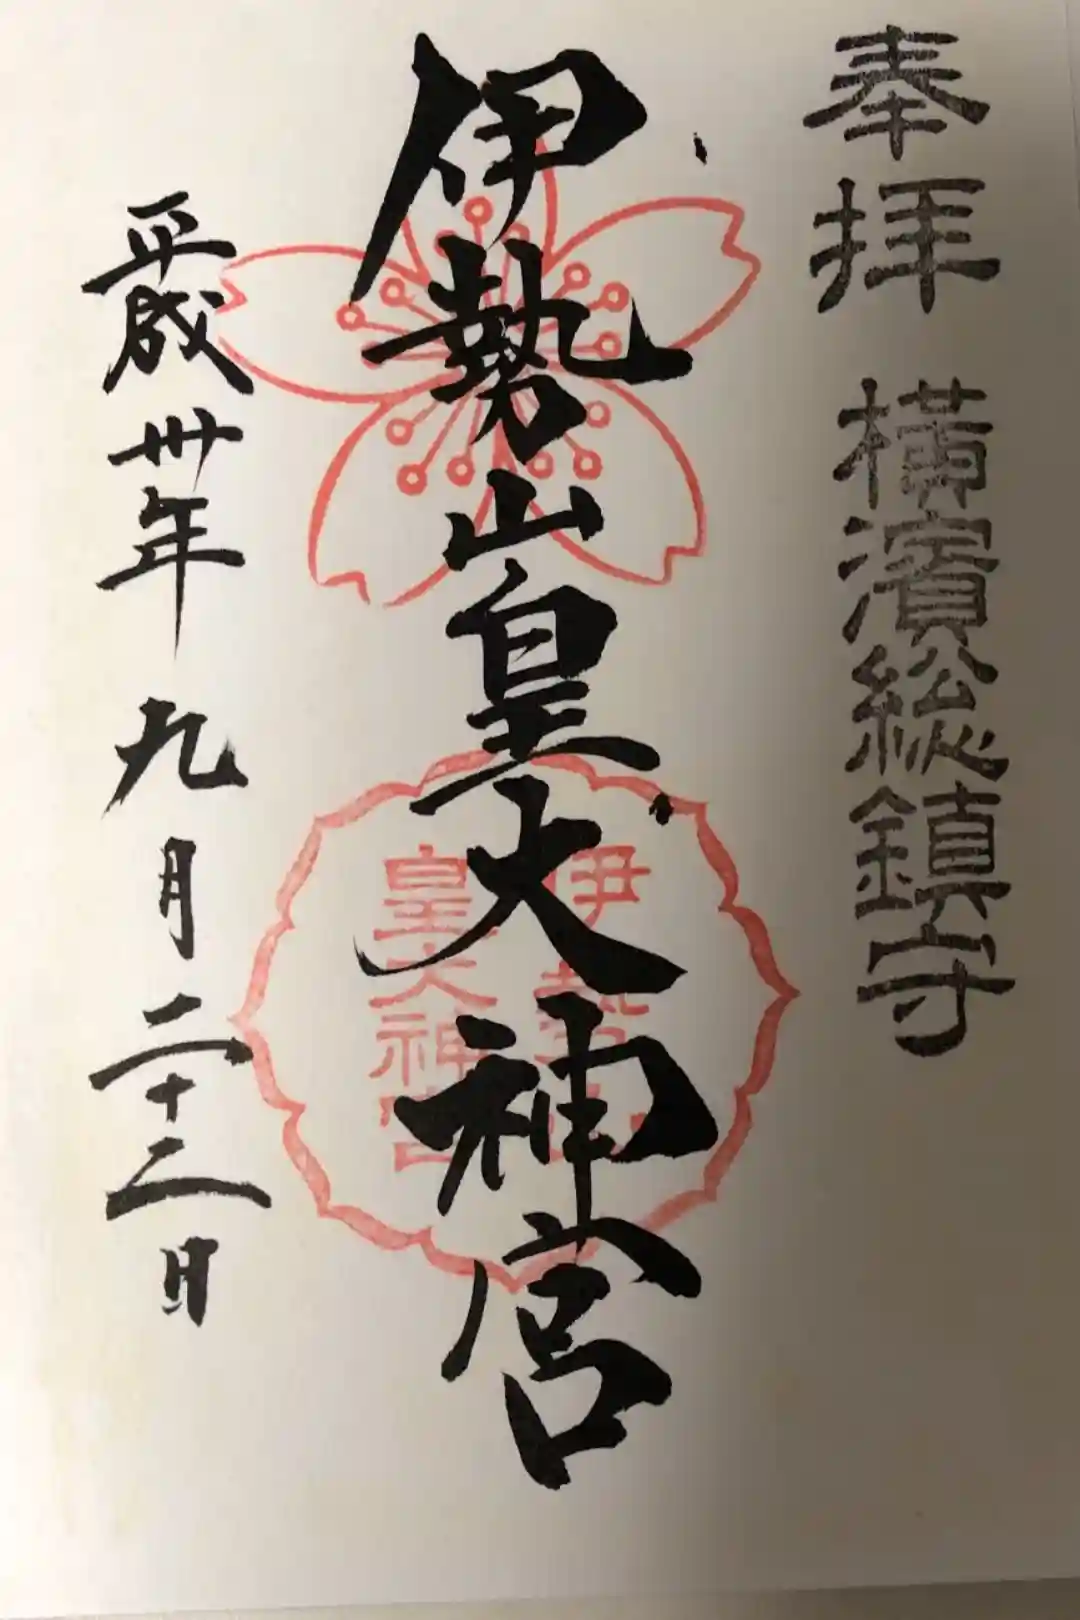 奉拝 横濱総鎮守
伊勢山皇大神宮
伊勢山
皇大神宮
平成卅年 九月二十二日